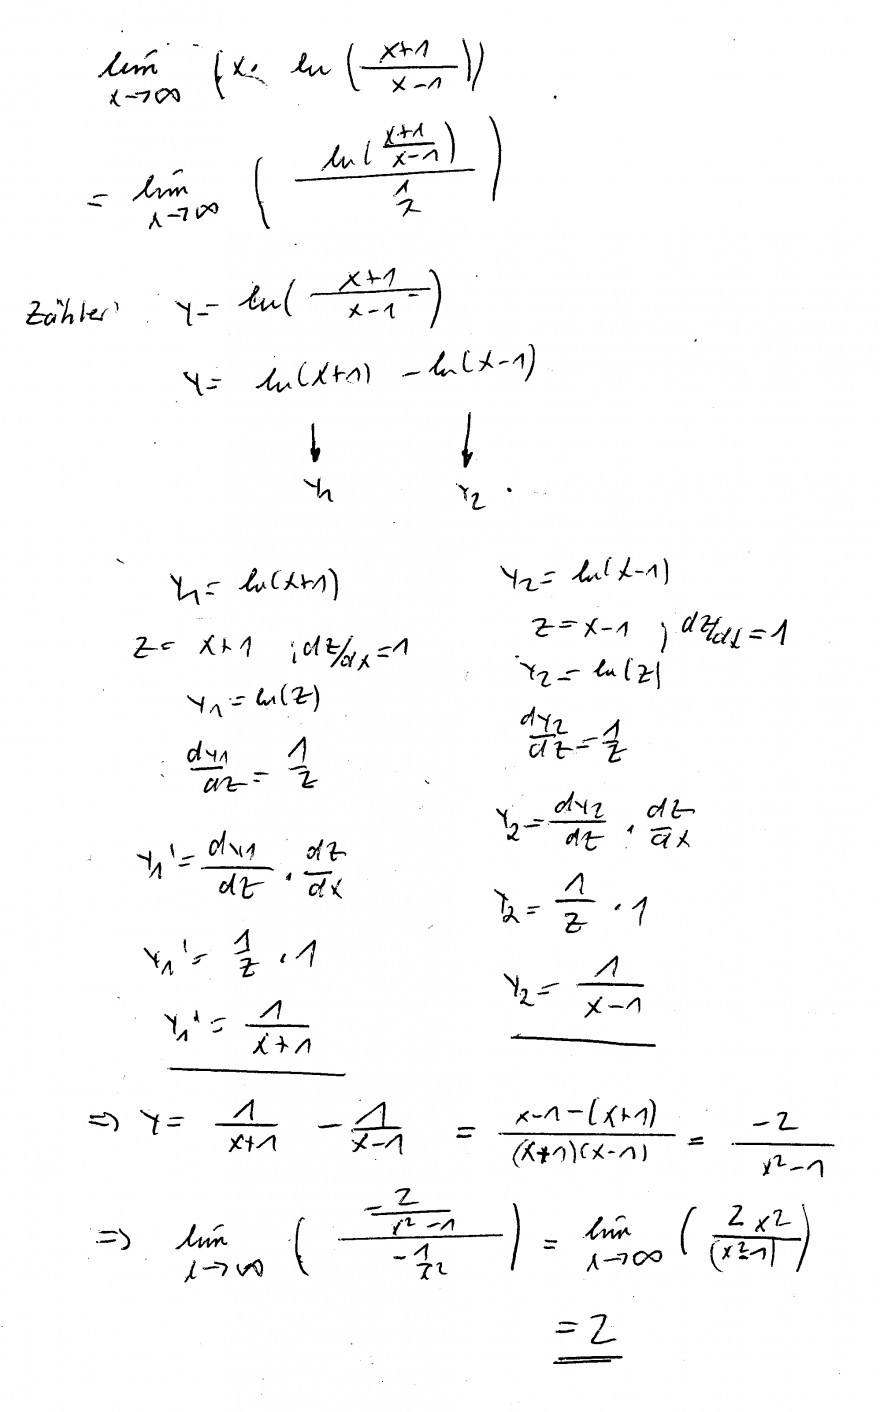 lim x→∞ (x · ln((x+1)/(x-1)))
= lim x→∞ ( ln((x+1)/(x-1)) / (1/x) )
Zähler: y = ln((x+1)/(x-1))
y = ln(x+1) - ln(x-1)
↓ ↓
y1 y2
y1 = ln(x+1)
z = x+1 ; dz/dx = 1
y1 = ln(z)
dy1/dz = 1/z
y1' = dy1/dz · dz/dx
y1' = 1/z · 1
y1' = 1/(x+1)
y2 = ln(x-1)
z = x-1 ; dz/dx = 1
y2 = ln(z)
dy2/dz = 1/z
y2 = dy2/dz · dz/dx
y2 = 1/z · 1
y2 = 1/(x-1)
=> y = 1/(x+1) - 1/(x-1) = (x-1-(x+1))/((x+1)(x-1)) = -2/(x²-1)
=> lim x→∞ ( (-2/(x²-1)) / (-1/x²) ) = lim x→∞ ( 2x²/(x²-1) )
= 2